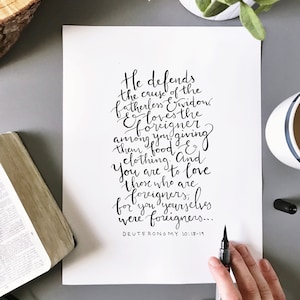 He defends
the cause of the
fatherless & widow,
& loves the
foreigner
among you giving
them food &
clothing. And
you are to love
those who are
foreigners,
for you yourselves
were foreigners...
DEUTERONOMY 10:18-19